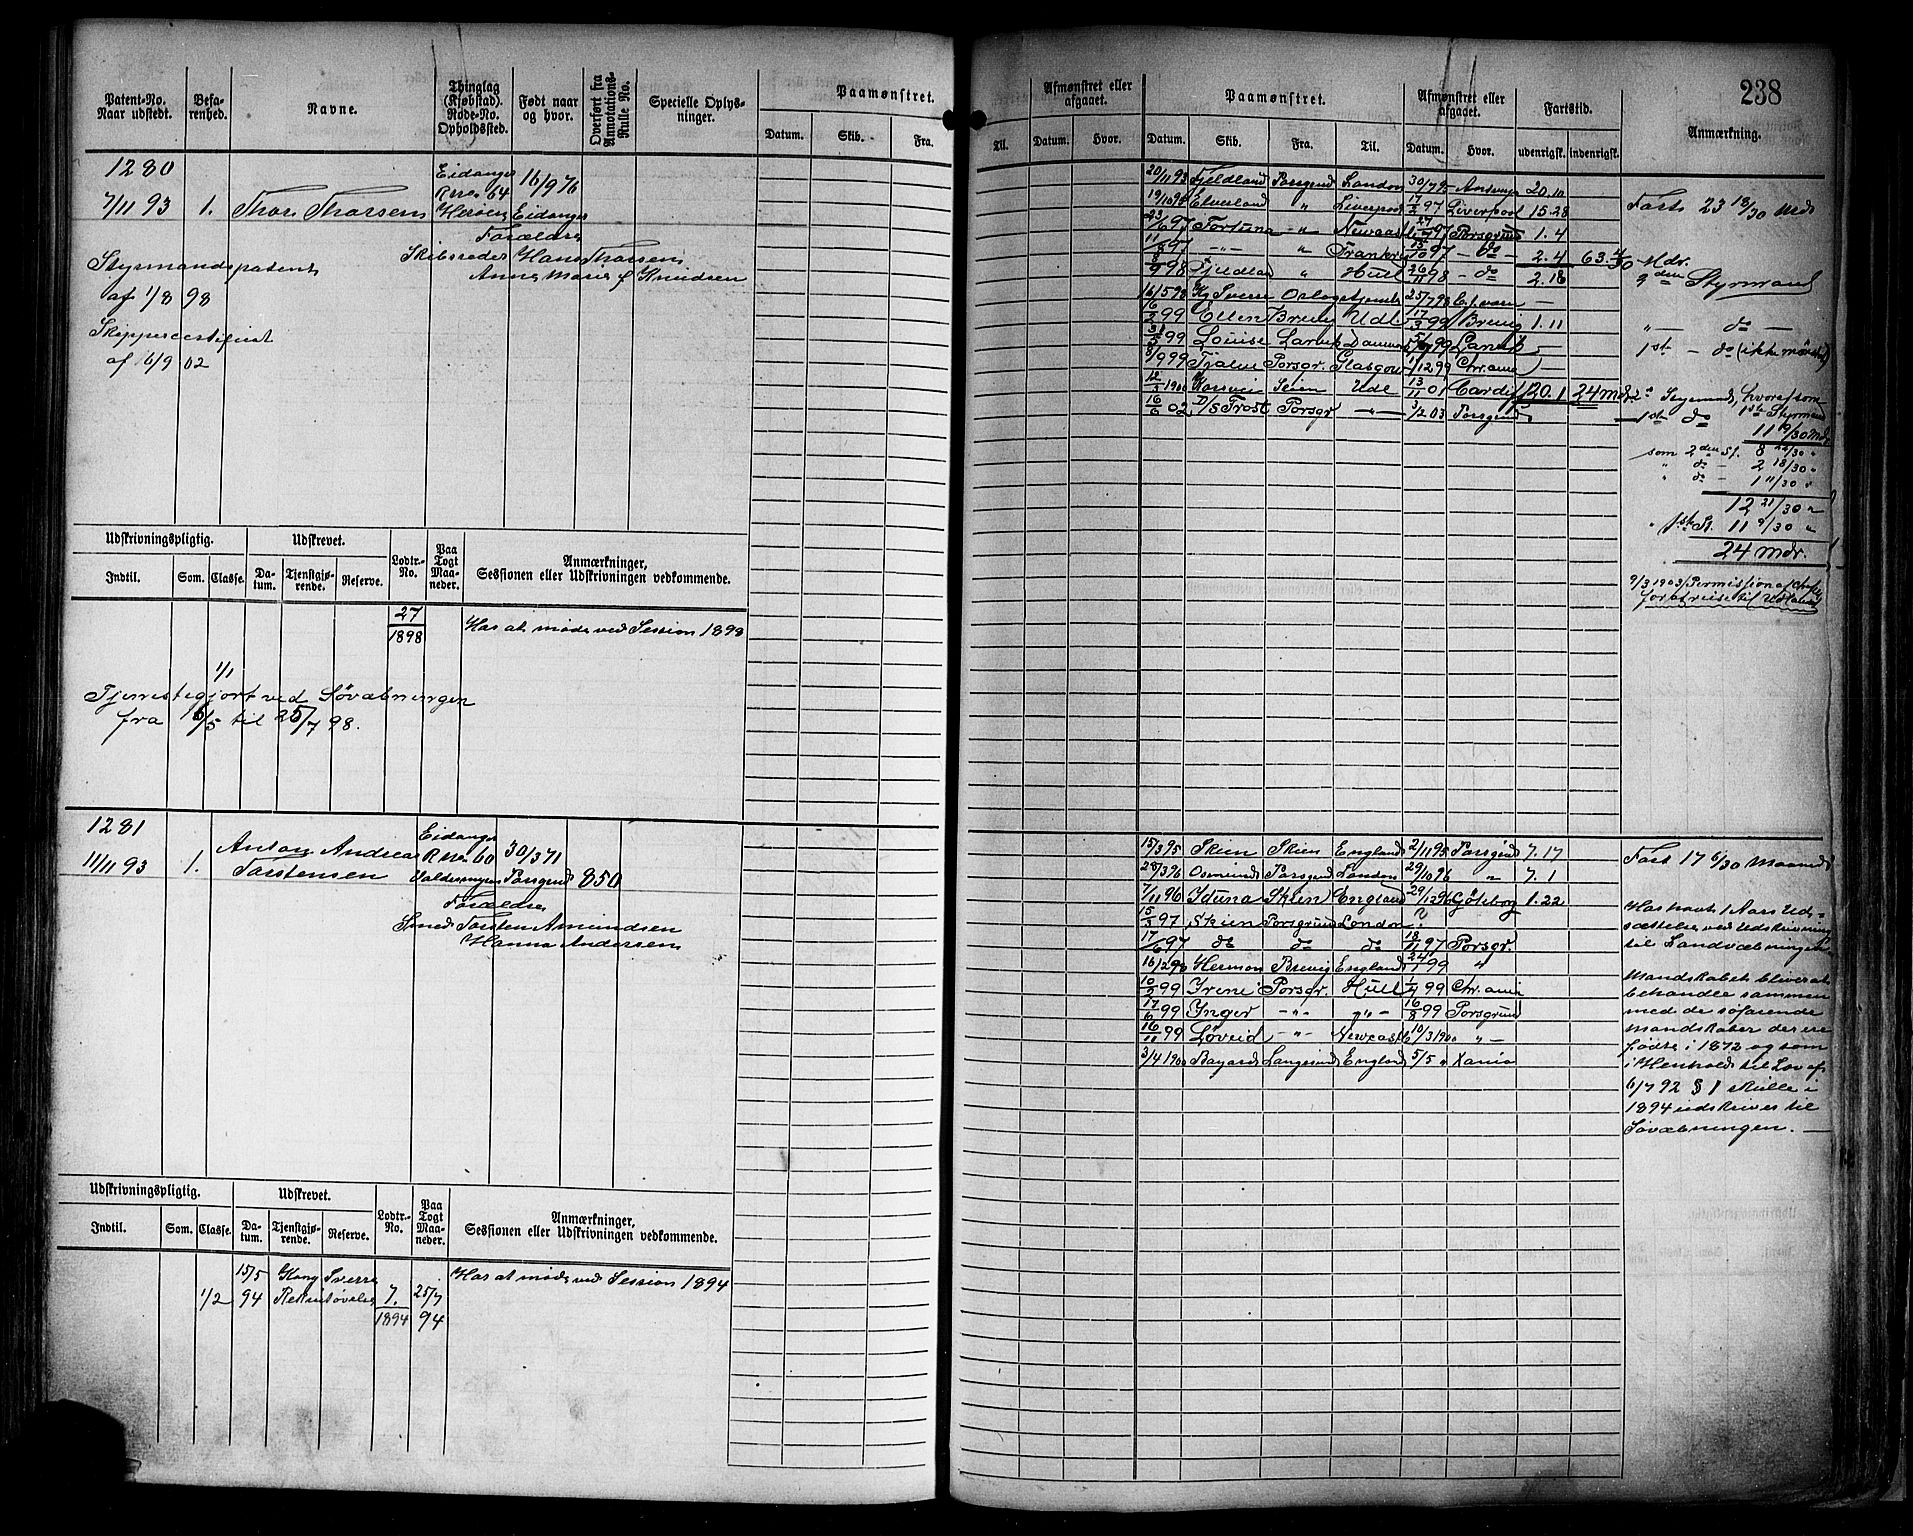 238
Patent-No. Naar udstedt.
Befarenhed.
Navne.
Thinglag (Kjøbstad). Rode-No. Opholdssted.
Født naar og hvor.
Overført fra Annotations-Rulle No.
Specielle Oplysninger.
Paamønstret.
Datum. Skib. Fra.
Til.
Afmønstret eller afgaaet.
Datum. Hvor.
Paamønstret.
Datum. Skib. Fra. Til.
Afmønstret eller afgaaet.
Datum. Hvor.
Fartstid.
udenrigsk. indenrigsk.
Anmærkning.
1280
7/11 93 1. Thor Thorsen
Eidanger
Rno 64
16/9 76
Eidanger
Forældre
Skibsreder Hans Thorsen
Anna Marie f Knudsen
Styrmandspatent
af 1/8 98
Skippercertifikat
af 6/9 02
20/11 93 Fjeldland Porsgrund London 30/7 95 20.10
19/10 95 Elverland " Liverpool 17/2 97 Liverpool 15.28
23/6 97 Fortuna -"- Newcastle Porsgrund 1.4
11/8 97 -"- " Frankrig - do - 2.4
8/9 98 Fjeldland " Hull 26/11 98 - do 2.18
16/5 98 Kg Sverre 25/7 98
16/2 99 Ellen Brevig Udl 17/3 99 Brevig 1.11
31/5 99 Louise Larvik 99 Larvik
8/9 99 Porsgr. Glasgow 1/12 99 Chr.ania
12/3 1900 Udl 13/11 01 Cardiff 20.1 24 mdr
16/6 02 D/S Frost Porsgr -"- 3/2 03 Porsgrund
Farts 23 18/30 Mdr
Mdr.
2den Styrmand
"— do —
1ste - do (ikke mønstret)
1ste Styrmand
1ste do
11 9/30 Mdr
som 2den St. 8 22/30 "
" do - 2 18/30 "
" do - 1 11/30 "
12 21/30 "
" 1ste St. 11 9/30 "
24 mdr.
9/3 1903 Permission af Chefen
for at reise til Udlandet
Udskrivningspligtig.
Indtil. Som. Classe.
Udskrevet.
Datum. Tjenstgjørende. Reserve.
Lodtr.-No.
Paa Togt Maaneder.
Anmærkninger, Sessionen eller Udskrivningen vedkommende.
27
1898
Har at møde ved Session 1898
1/1
Tjenestegjort ved Søvæbningen
fra 16/5 til 25/7 98.
1281
11/11 93 1. Anton Andreas
Torstensen
Eidanger
Rno 60
30/3 71
Porsgrund
850
Forældre
Smed Torsten Amundsen
Hanna Andersen
15/3 95 Skien Skien England 2/11 95 Porsgrund 7.17
28/3 96 Osmund Porsgrund London 29/10 96 " 7.1
7/11 96 Iduna Skien England 29/12 96 Göteborg 1.22
15/3 97 Skien Porsgrund London
17/6 97 do do do 18/11 97 Porsgr.
16/2 98 Hermon Brevig England 24/1 99 "
10/2 99 Irene Porsgr. Hull 1/4 99 Chr.ania
17/6 99 Inger -"- "- 16/8 99 Porsgrund
16/11 99 Løveid -"- Newcastle 10/3 1900 " -
3/4 1900 Bayard Langesund England 5/5 " Xania
Fart 17 6/30 Maaned
Har havt 1 Aars Ud-
sættelse ved Udskrivning
til Landvæbningen
Mandskabet bliver at
behandle sammen
med de søfarende
Mandskaber der ere
fødte i 1872 og som
i Henhold til Lov af
6/7 92 § 1 skulle i
1894 udskrives til
Søvæbningen. —
Udskrivningspligtig.
Indtil. Som. Classe.
Udskrevet.
Datum. Tjenstgjørende. Reserve.
Lodtr.-No.
Paa Togt Maaneder.
Anmærkninger, Sessionen eller Udskrivningen vedkommende.
15/5 Kong Sverre
1/2 94 7. 25/7
1894 94
Har at møde ved Session 1894